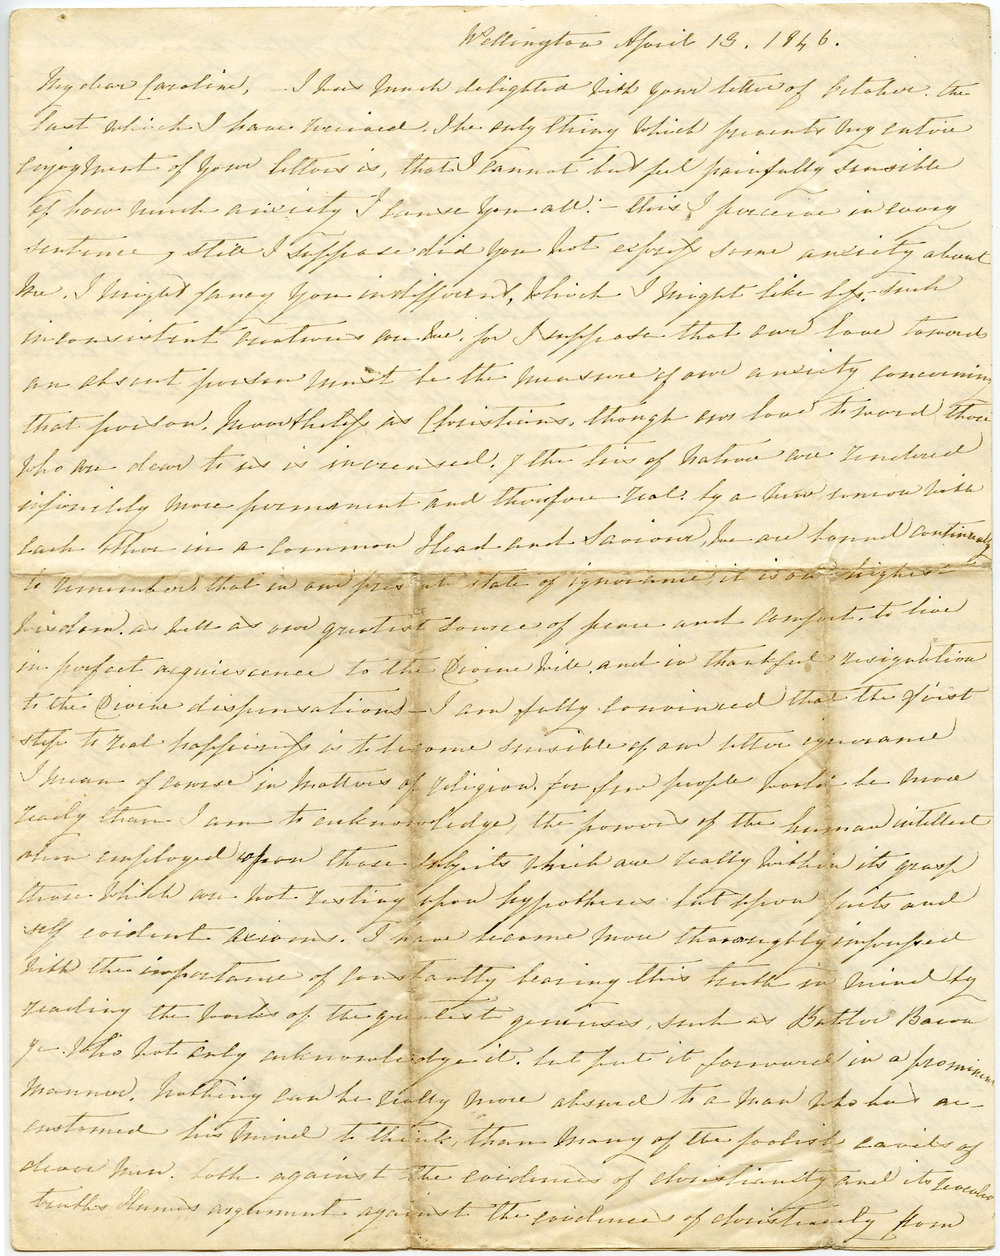 Wellington April 13. 1846.
My dear Caroline, — I was much delighted with your letter of October. the
last which I have received. The only thing which prevents my entire
enjoyment of your letters is, that I cannot but feel painfully sensible
of how much anxiety I cause you all: — this I perceive in every
sentence, still I suppose did you not express some anxiety about
me. I might fancy you indifferent, which I might like less, — such
inconsistent creatures are we. for I suppose that our love toward
an absent person must be the measure of our anxiety concerning
that person. Nevertheless as Christians, though our love toward those
who are dear to us is increased, & the ties of nature are rendered
infinitely more permanent and therefore real: by a new union with
each other in a common Head and Saviour, we are bound continually
to remember that in our present state of ignorance it is our highest
wisdom. as well as our greatest source of peace and comfort. to live
in perfect acquiescence to the Divine will. and in thankful resignation
to the Divine dispensations — I am fully convinced that the first
step to real happiness is to become sensible of our utter ignorance
I mean of course in matters of religion. for few people would be more
ready than I am to acknowledge, the powers of the human intellect
when employed upon those subjects which are really within its grasp
those which are not resting upon hypotheses but upon facts and
self evident axioms. I have become more thoroughly impressed
with the importance of constantly bearing this truth in mind by
reading the works of the greatest geniuses, such as Butler Bacon
&c. who not only acknowledge it. but put it forward in a prominent
manner. Nothing can be really more absurd to a man who has ac-
customed his mind to think, than many of the foolish cavils of
clever men. both against the evidences of christianity and its revealed
truths Humes argument against the evidences of christianity from